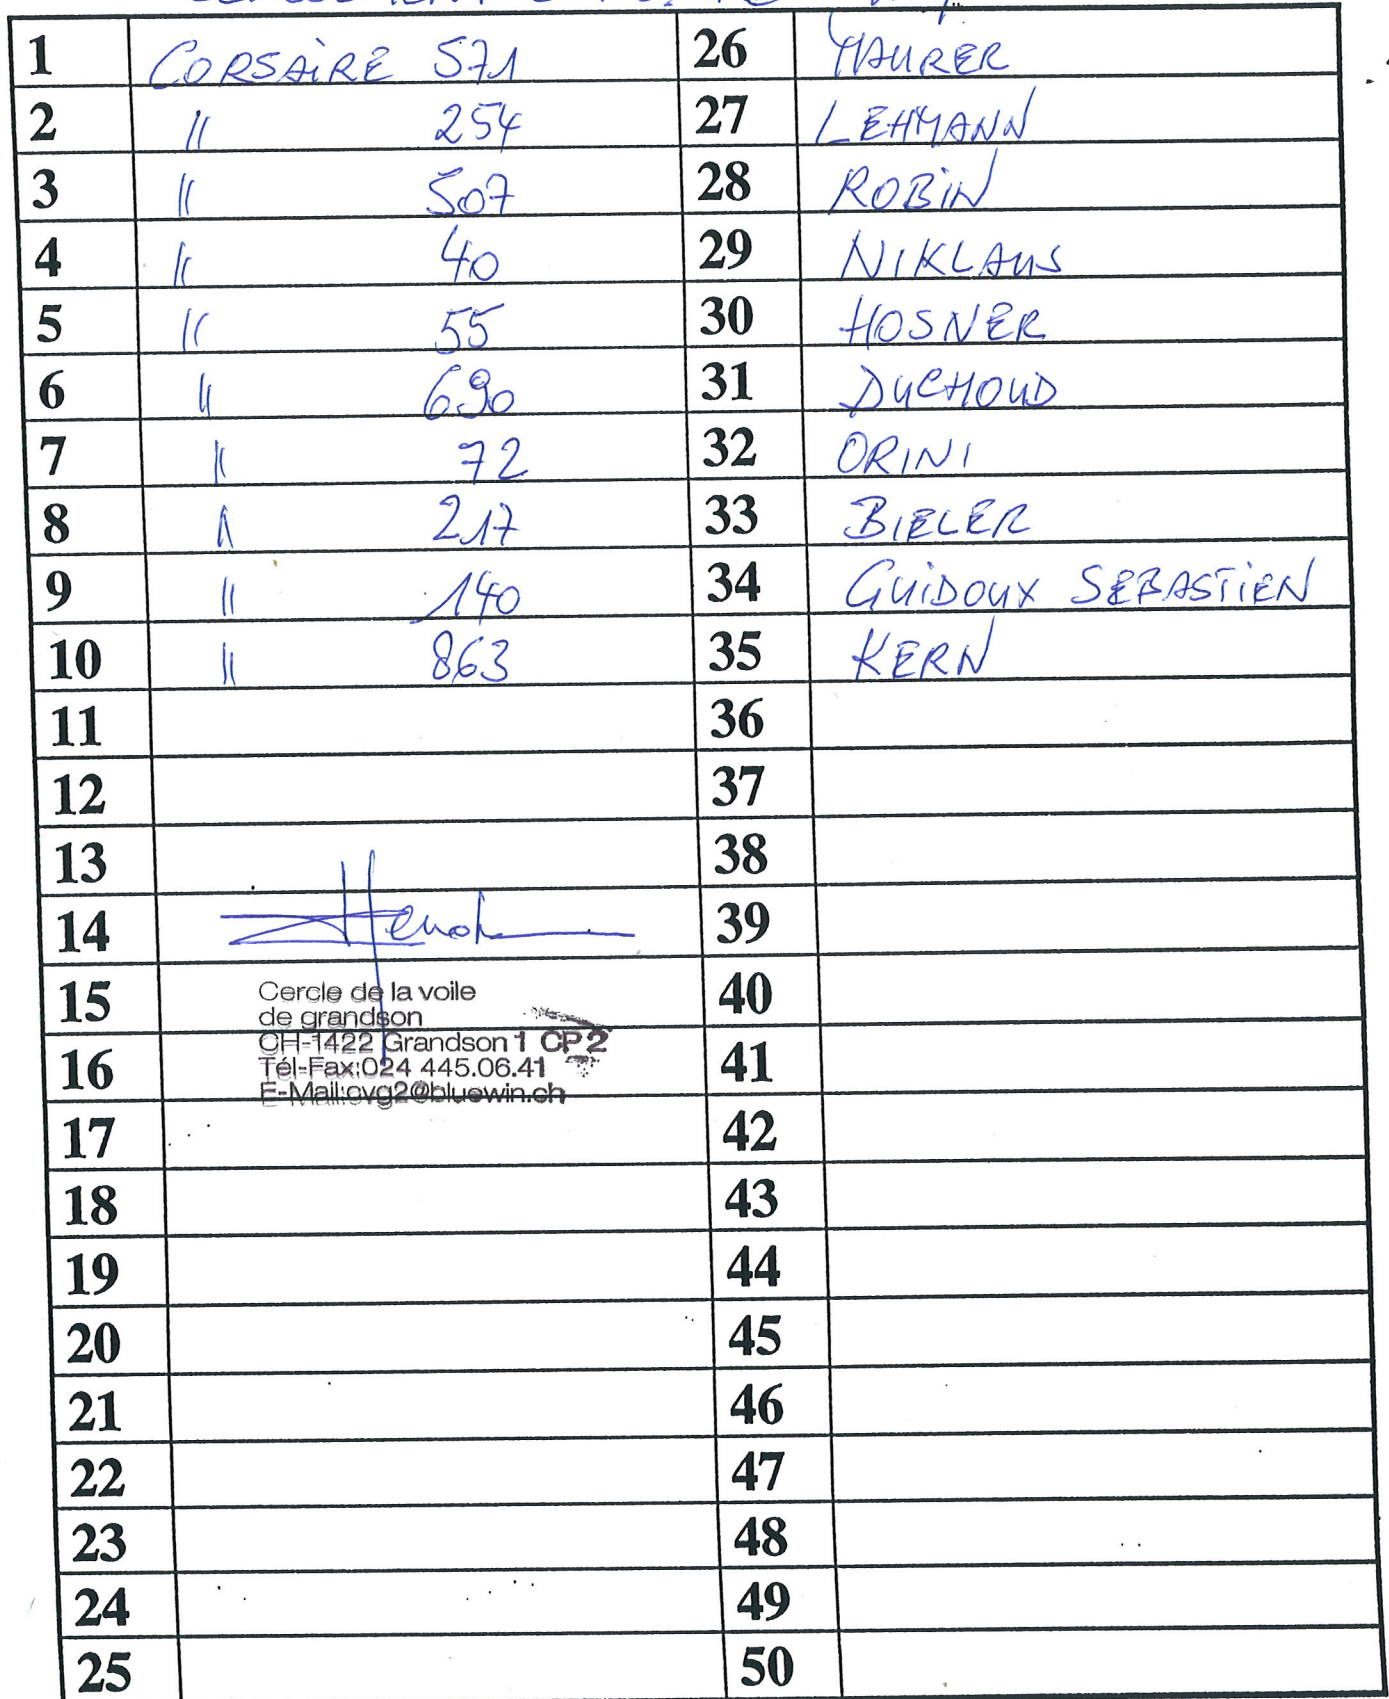 1 CORSAIRE 571 26 MAURER
2 " 254 27 LEHMANN
3 " 507 28 ROBIN
4 " 40 29 NIKLAUS
5 " 55 30 HOSNER
6 " 690 31 DUCHOUD
7 " 72 32 ORINI
8 " 217 33 BIELER
9 " 140 34 GUIDOUX SEBASTIEN
10 " 863 35 KERN
11 36
12 37
13 38
14 39
15 40
Cercle de la voile
de grandson
CH-1422 Grandson 1 CP 2
16 41
Tél-Fax:024 445.06.41
E-Mail:cvg2@bluewin.ch
17 42
18 43
19 44
20 45
21 46
22 47
23 48
24 49
25 50